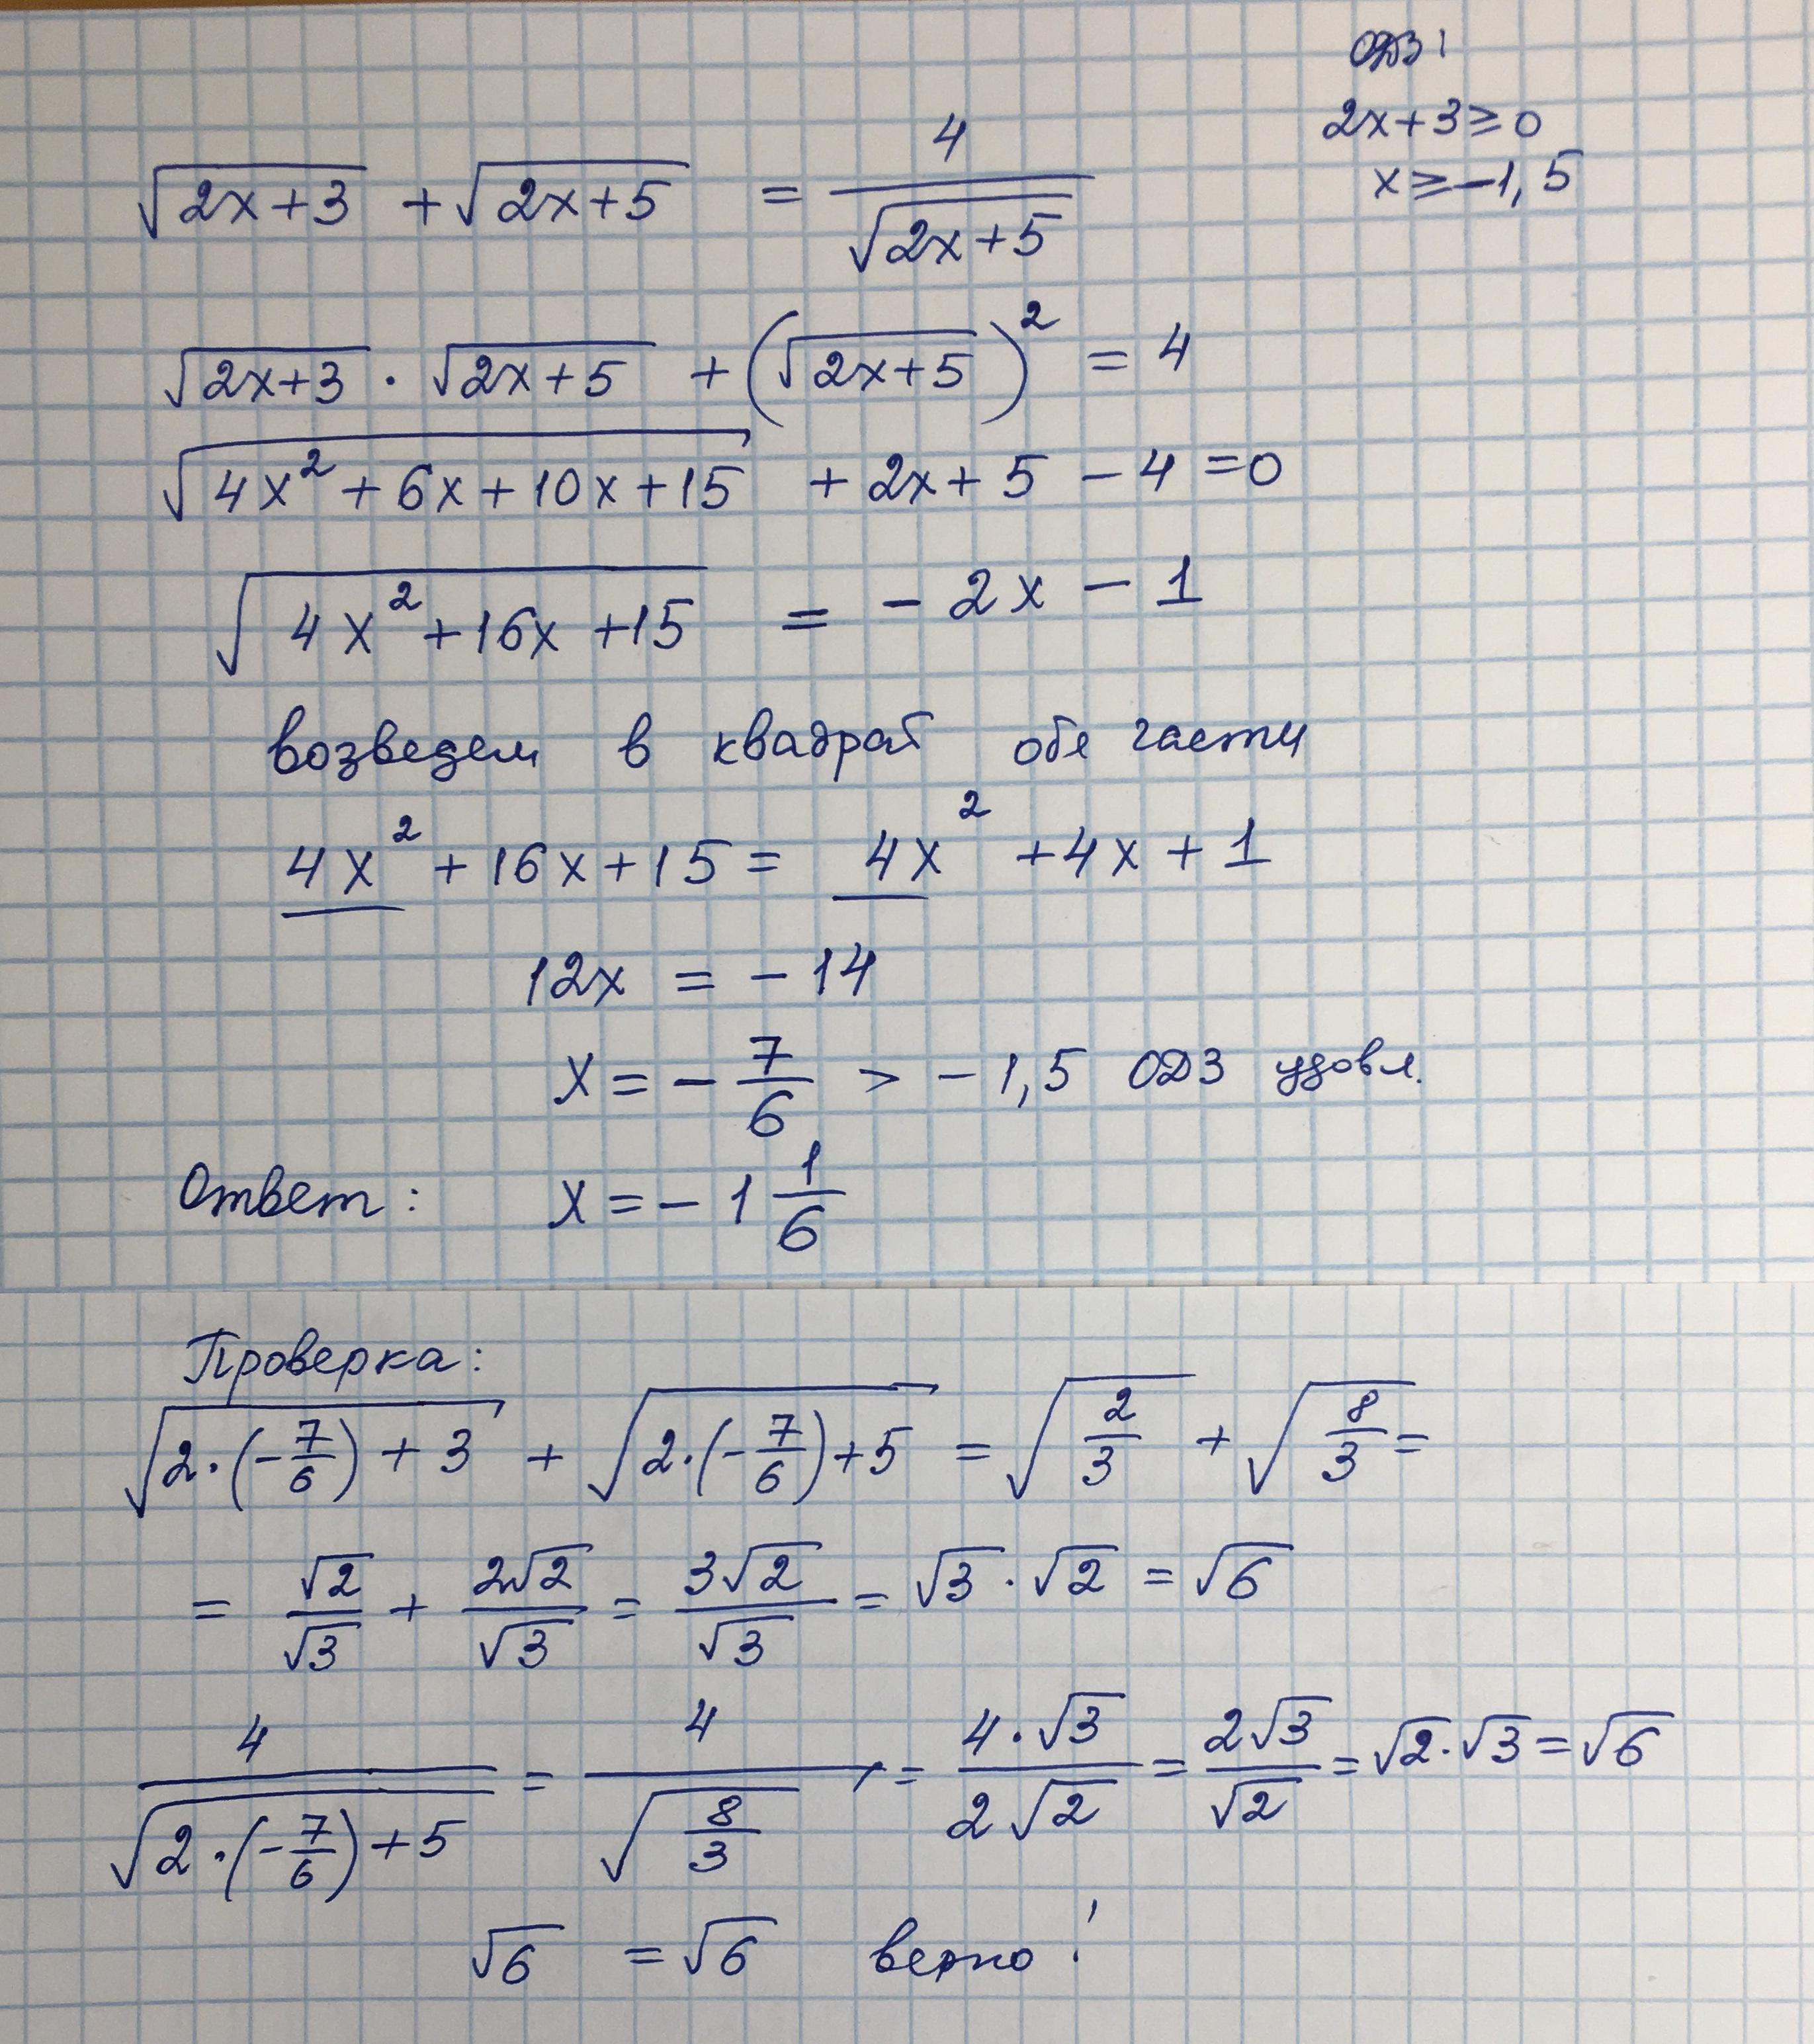 ОДЗ:
2x+3≥0
x≥-1,5
√(2x+3) + √(2x+5) = 4/√(2x+5)
√(2x+3) · √(2x+5) + (√(2x+5))² = 4
√(4x²+6x+10x+15) + 2x+5 - 4 = 0
√(4x²+16x+15) = - 2x - 1
возведем в квадрат обе части
4x² + 16x + 15 = 4x² + 4x + 1
12x = - 14
x = - 7/6 > - 1,5 ОДЗ удовл.
Ответ: x = - 1 1/6
Проверка:
√(2·(-7/6)+3) + √(2·(-7/6)+5) = √(2/3) + √(8/3) =
= √2/√3 + 2√2/√3 = 3√2/√3 = √3 · √2 = √6
4/√(2·(-7/6)+5) = 4/√(8/3) = 4·√3/2√2 = 2√3/√2 = √2·√3 = √6
√6 = √6 верно!